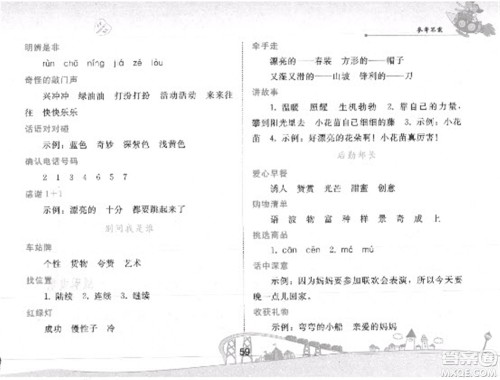 参考答案
明辨是非
rùn chā níng jiá zé lòu
奇怪的敲门声
兴冲冲 绿油油 打扮打扮 活动活动 来来往
往 快快乐乐
话语对对碰
示例:蓝色 奇妙 微型客 浅黄色
确认电话号码
2 1 3 4 6 5 7
感谢1+1
示例:漂亮的 十分 都要跳起来了
别问我是谁
车站牌
个性 货物 夸赞 艺术
找位置
1. 陆续 2. 连续 3. 继续
红绿灯
成功 慢性子 冷
牵手走
漂亮的——春装 方形的——帽子
又湿又滑的——山坡 锋利的——刀
讲故事
1. 温暖 照耀 生机勃勃 2. 靠自己的力量,
攀到阳光里去 小花苗自己细细的藤 3. 示例:小花
苗 4. 示例:好漂亮的花朵啊!小花苗真厉害!
后勤部长
爱心早餐
诱人 赞赏 光芒 甜蜜 创意
购物清单
语 波 物 富 种 样 景 奇 成 上
挑选商品
1. cān cēn 2. mó mú
话中深意
示例:因为妈妈要参加联欢会表演,所以今天要
晚一点儿回家。
收获礼物
示例:弯弯的小船 亲爱的妈妈
59
答案圈
MXQE.COM